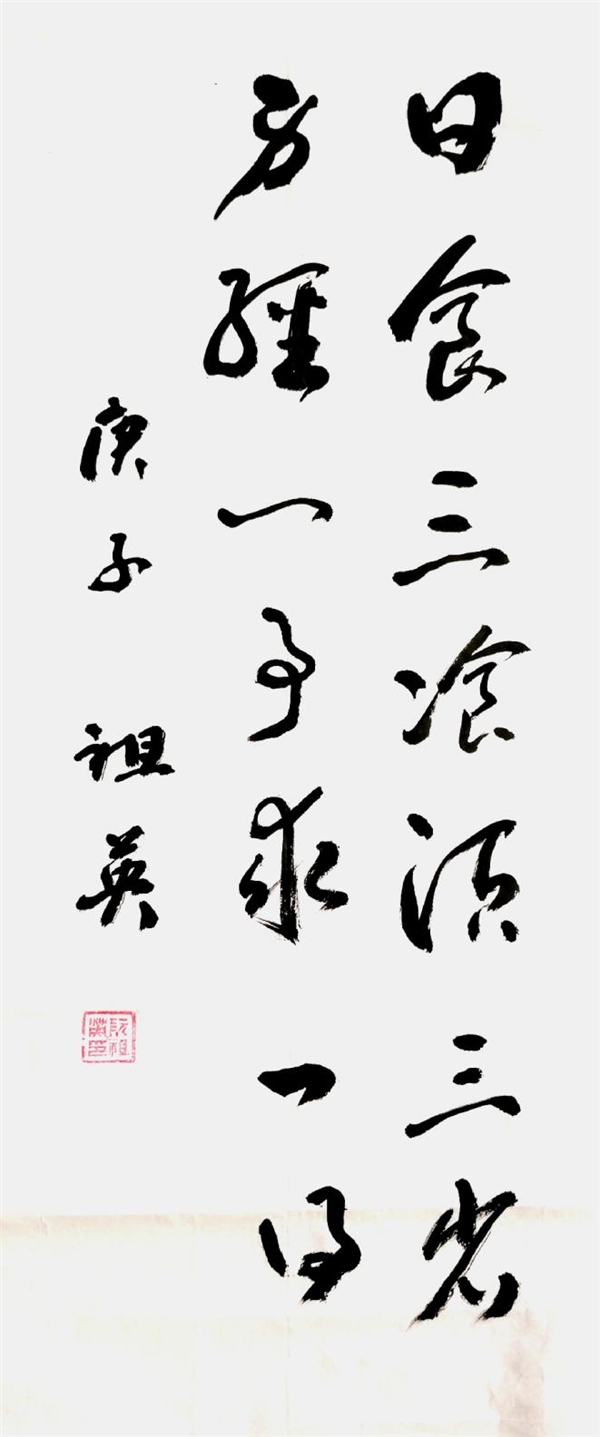 日食三飡須三省
身經一事求一得
庚子 祖英